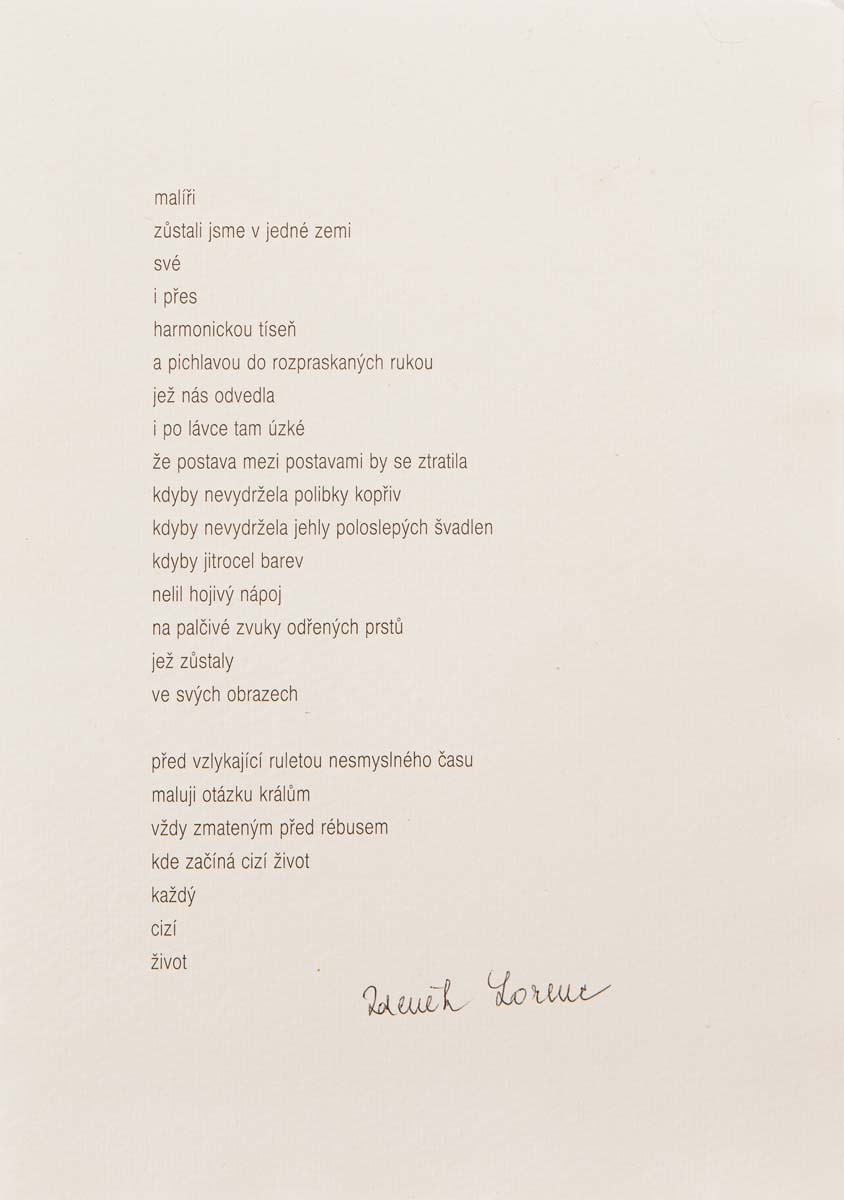 malíři
zůstali jsme v jedné zemi
své
i přes
harmonickou tíseň
a pichlavou do rozpraskaných rukou
jež nás odvedla
i po lávce tam úzké
že postava mezi postavami by se ztratila
kdyby nevydržela polibky kopřiv
kdyby nevydržela jehly poloslepých švadlen
kdyby jitrocel barev
nelil hojivý nápoj
na palčivé zvuky odřených prstů
jež zůstaly
ve svých obrazech

před vzlykající ruletou nesmyslného času
maluji otázku králům
vždy zmateným před rébusem
kde začíná cizí život
každý
cizí
život
Zdeněk Lorenc